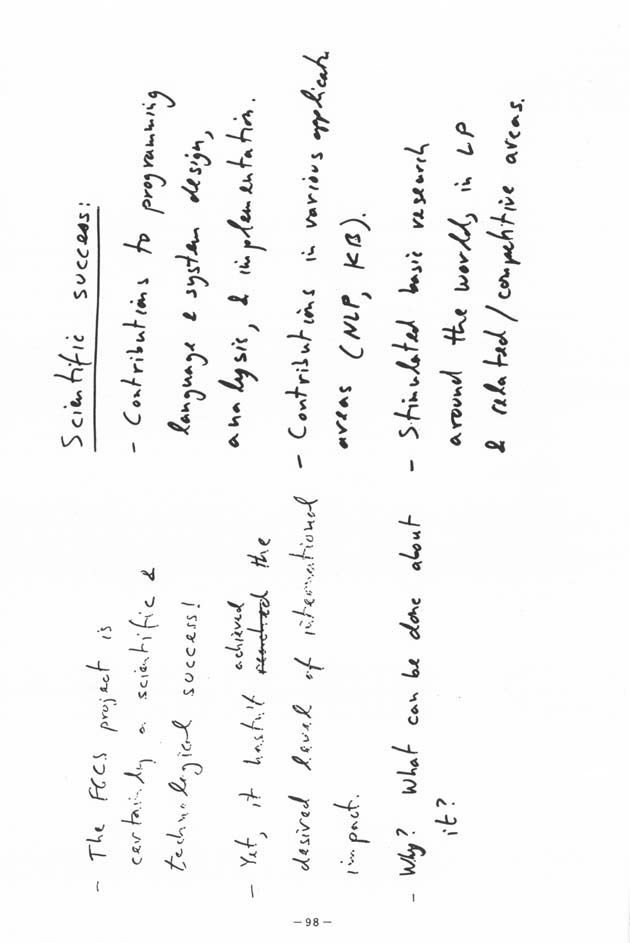 - The FGCS project is
certainly a scientific &
technological success!
- Yet, it hasn't achieved the
desired level of international
impact.
- Why? What can be done about
it?
Scientific success:
- Contributions to programming
language & system design,
analysis, & implementation.
- Contributions in various
areas (NLP, KB).
- Stimulated basic research
around the world, in LP
& related/competitive areas.
- 98 -